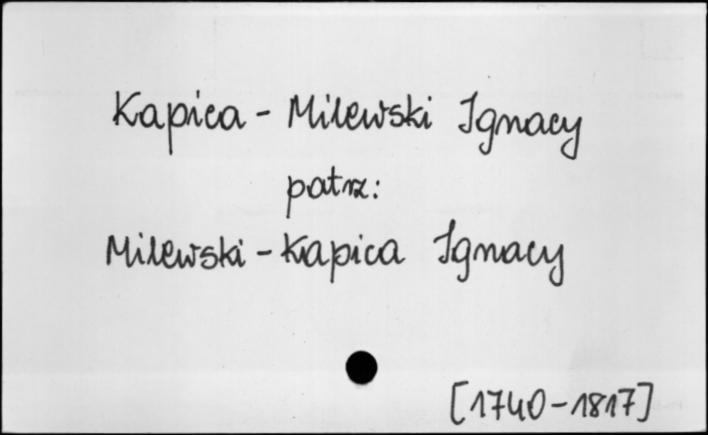 Kapica - Milewski Ignacy
patrz:
Milewski - Kapica Ignacy
[1740-1817]